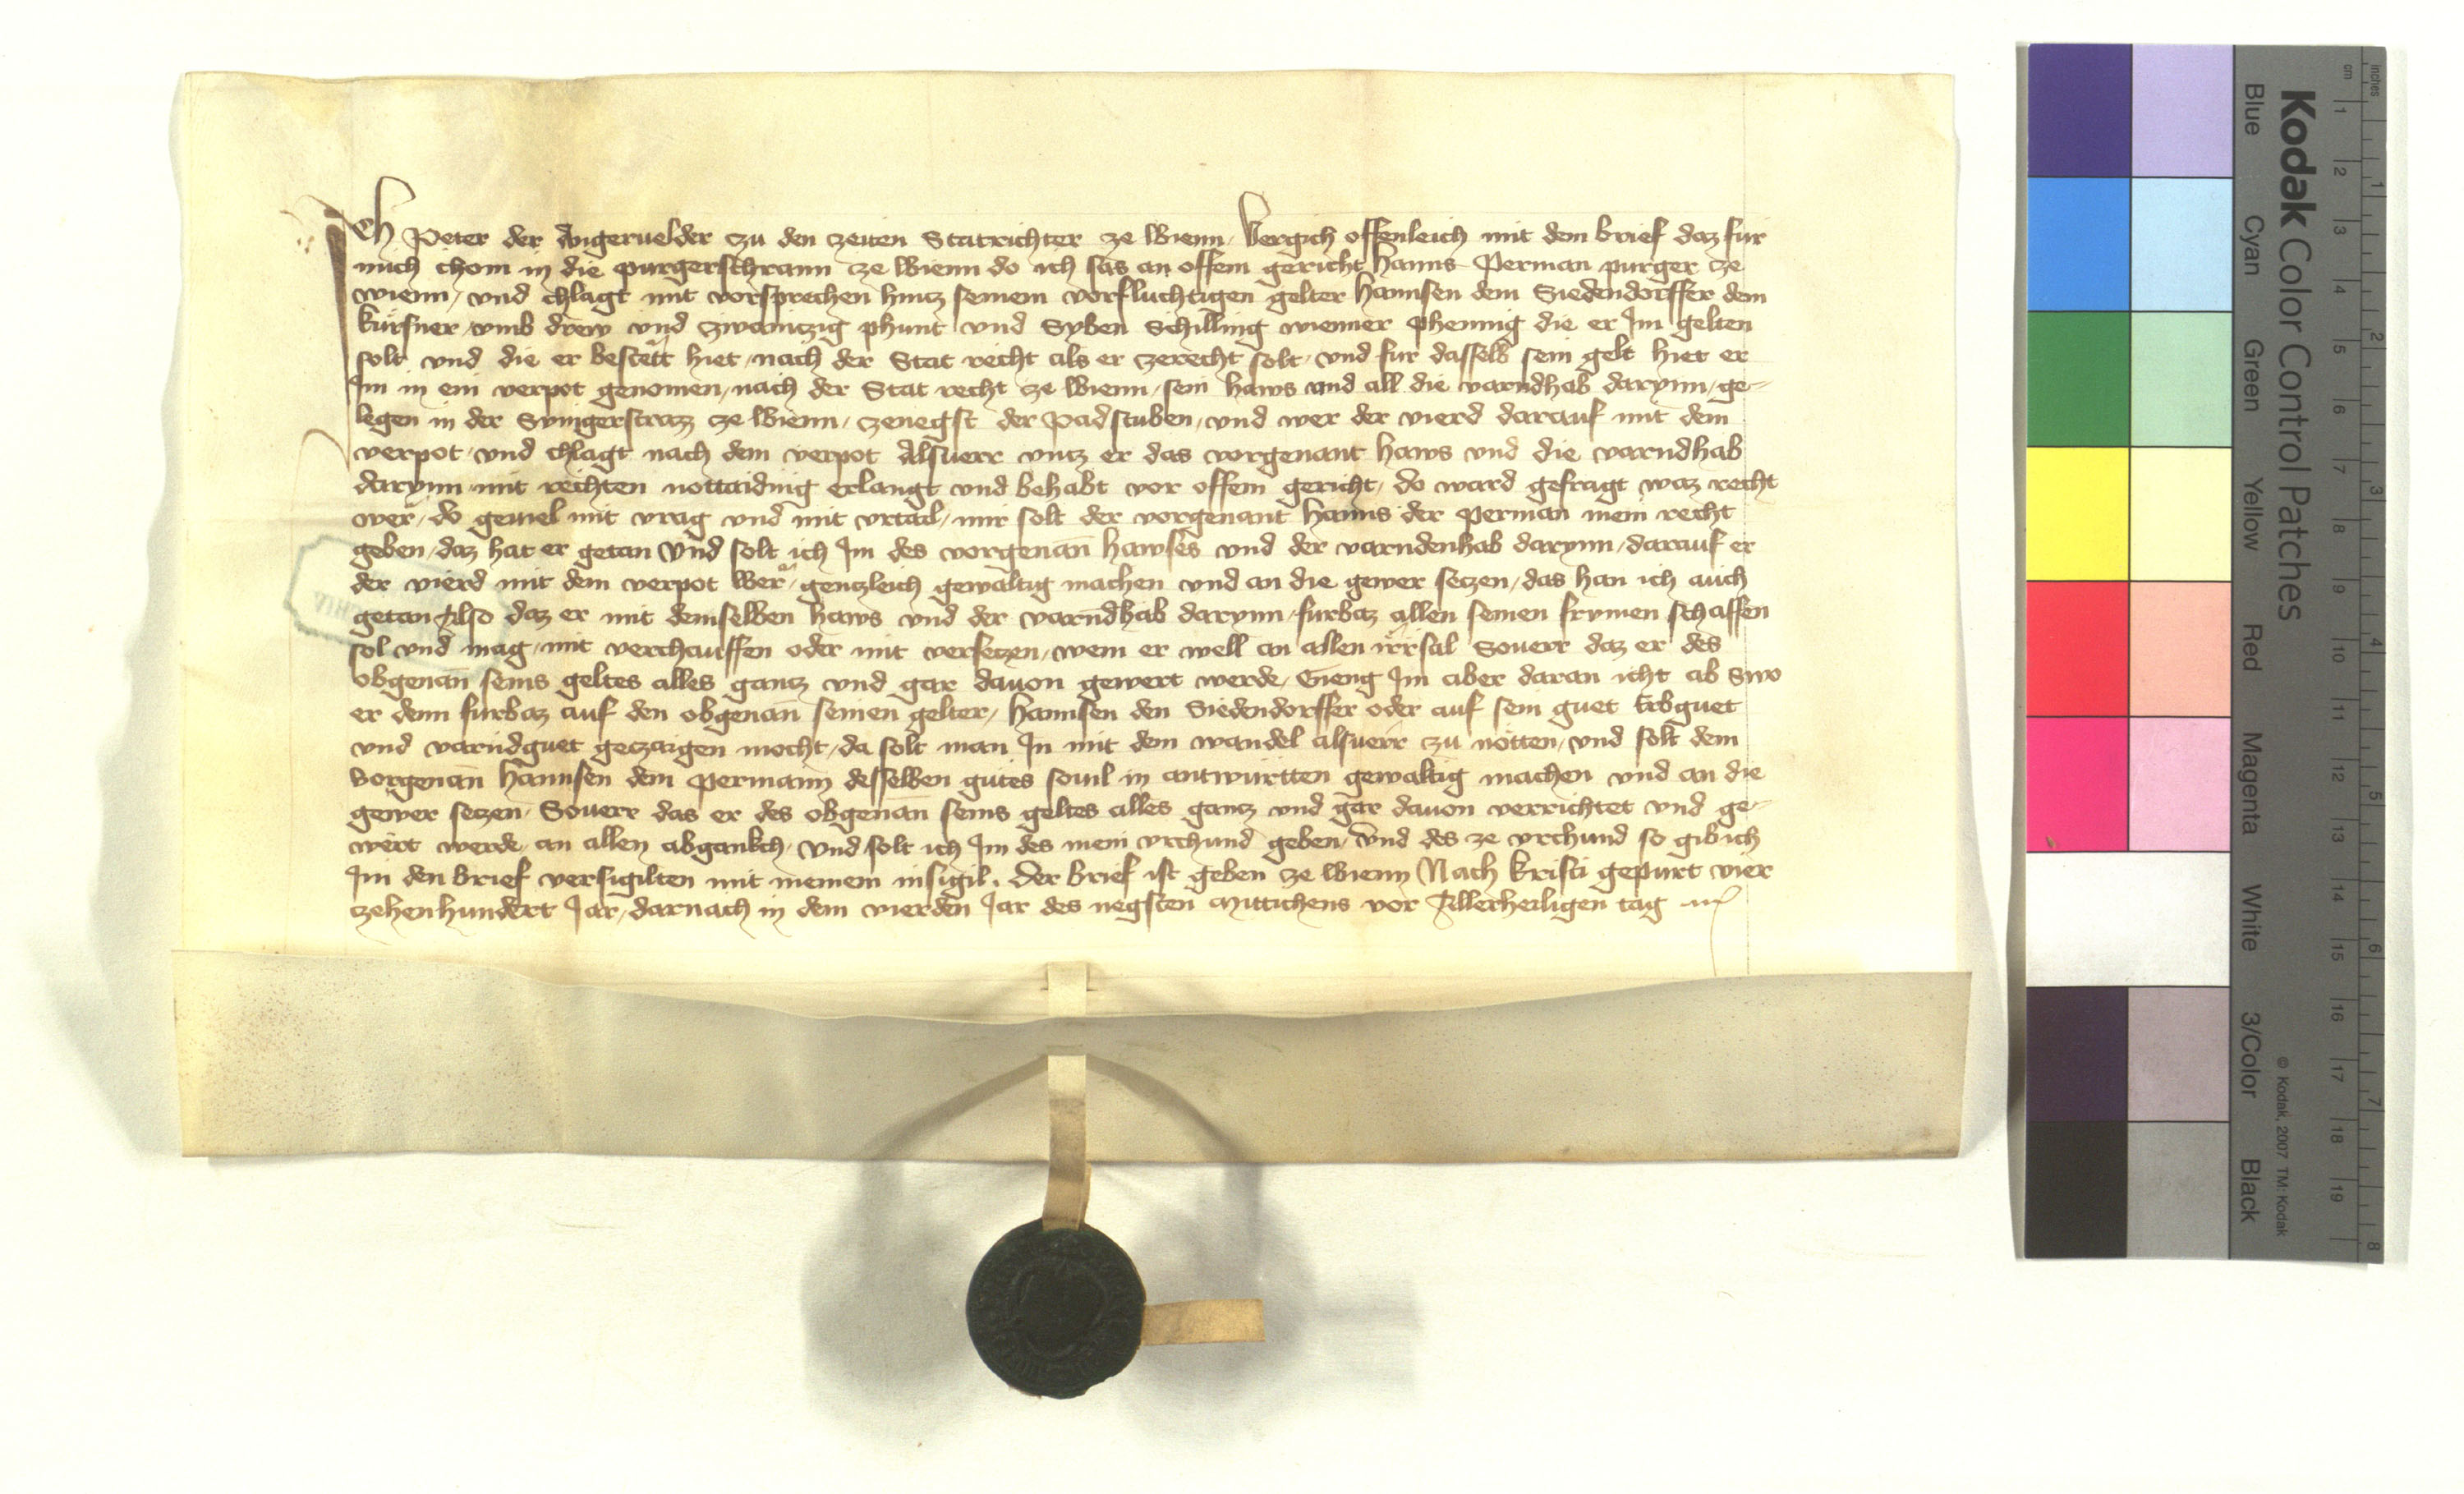 Ich Peter der Angeruelder zu den zeiten Statrichter ze Wienn, Vergich offenleich mit dem brief daz fur
mich chom in die purgerschrann ze Wienn do ich sas an offem gericht Hanns Perman purger ze
wienn, vnd chlagt mit vorsprechen hincz seinem vorfluchtigen gelter Hannsen dem Siedendorffer dem
kürsner, vmb drew vnd zwainczig phunt vnd Syben Schilling wienner phennig die er Im gelten
solt vnd die er bestett hiet, nach der Stat recht als er zerecht solt, vnd fur dasselb sein gelt hiet er
Im in ein verpot genomen, nach der Stat recht ze Wienn, sein haws vnd all die varndhab darynn, ge-
legen in der Syningerstrazz ze Wienn, zenegst der Padstuben, vnd wer der vierd darauf mit dem
verpot, vnd chlagt nach dem verpot Alsuerr vncz er das vorgenant haws vnd die varndhab
darynn mit rechten nottaiding erlangt vnd behabt vor offem gericht, do ward gefragt waz recht
wer, do geuiel mit vrag vnd mit vrtail, mir solt der vorgenant Hanns der Perman mein recht
geben, daz hat er getan Vnd solt ich Im des vorgenan̄ hawses vnd der varndenhab darynn, darauf er
der vierd mit dem verpot wer, genczleich gewaltig machen vnd an die gewer seczen, das han ich auch
getan Also daz er mit demselben haws vnd der varndhab darynn, furbaz allen seinen frumen schaffen
sol vnd mag, mit verchauffen oder mit verseczen, wem er well an allen irrsal Souerr daz er des
obgenan̄ seins geltes alles gancz vnd gar dauon gewert werde, Gieng Im aber daran icht ab Swo
er denn furbaz auf den obgenan̄ seinen gelter, Hannsen den Siedendorffer oder auf sein guet Erbguet
vnd varndguet geczaigen mocht, da solt man In mit dem wandel alsuerr zu nötten, vnd solt dem
Vorgenan̄ Hannsen dem Permann desselben gutes souil in antwurtten gewaltig machen vnd an die
gewer seczen, Souerr das er des obgenan̄ seins geltes alles gancz vnd gar dauon verrichtet vnd ge-
wert werde, an allen abgankch, Vnd solt ich Im des mein vrchund geben, Vnd des ze vrchund so gib ich
Im den brief versigilten mit meinem insigil, Der brief ist geben ze Wienn Nach kristi gepurt vier
zehenhundert Jar, darnach in dem vierden Jar des negsten Mittichens vor Allerheiligen tag
Kodak Color Control Patches
Blue Cyan Green Yellow Red Magenta White 3/Color Black
© Kodak, 2007 TM: Kodak
cm 1 2 3 4 5 6 7 8 9 10 11 12 13 14 15 16 17 18 19
inches 1 2 3 4 5 6 7 8